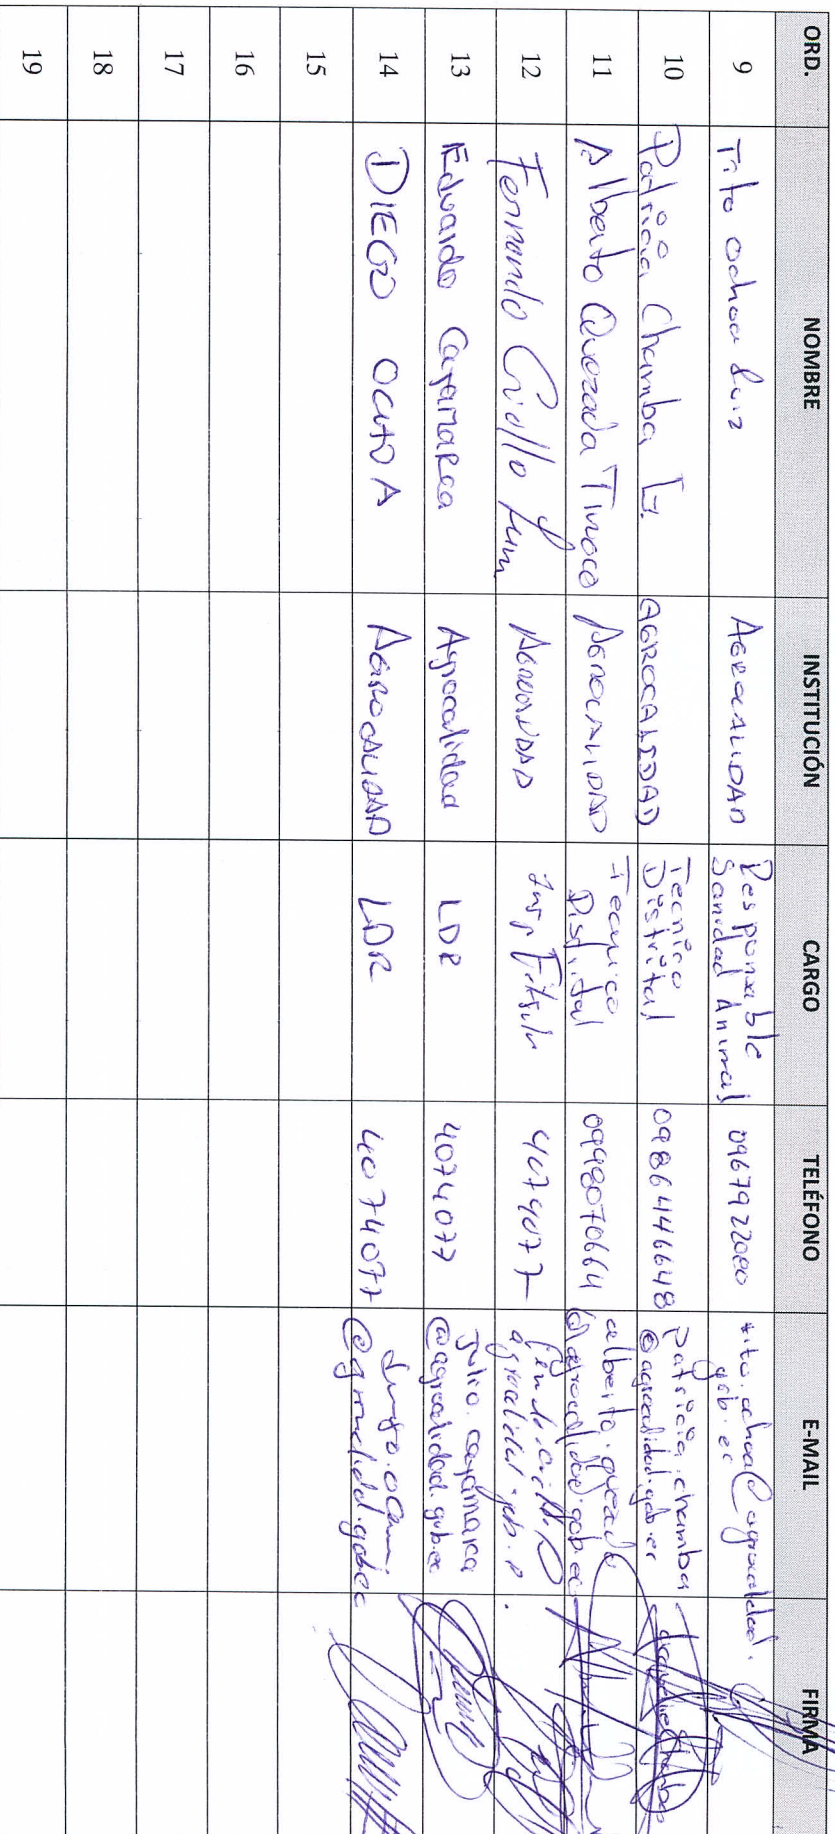 ORD. NOMBRE INSTITUCIÓN CARGO TELÉFONO E-MAIL FIRMA
9 Tito Ochoa Ruiz AGROCALIDAD Responsable Sanidad Animal 0967922080 tito.ochoa@agrocalidad.gob.ec
10 Patricia Chamba AGROCALIDAD Tecnico Distrital 0986446648 patricia.chamba@agrocalidad.gob.ec
11 Alberto Quezada Tinoco AGROCALIDAD Tecnico Distrital 0998070664 alberto.quezada@agrocalidad.gob.ec
12 Fernando Criollo AGROCALIDAD 4074077
13 Eduardo Cajamarca Agrocalidad LDR 4074077 julio.cajamarca@agrocalidad.gob.ec
14 DIEGO AGROCALIDAD LDR 4074077
15
16
17
18
19